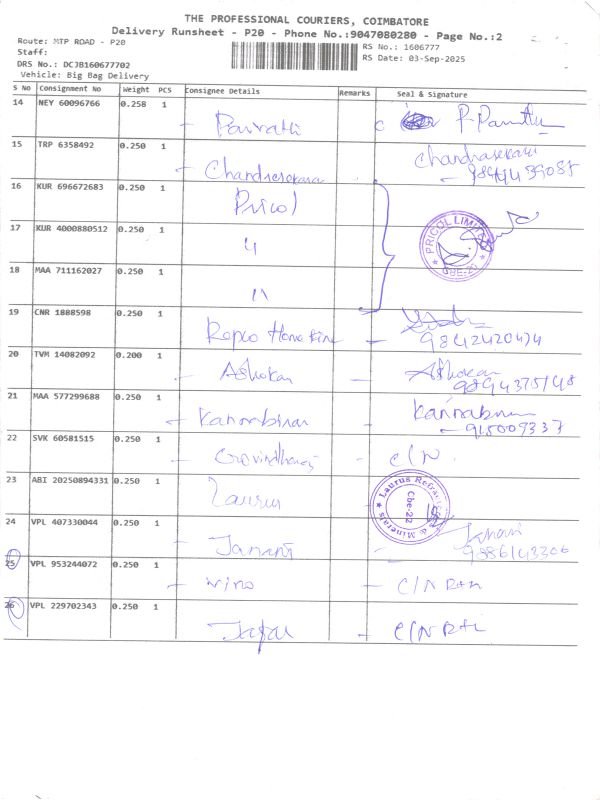 THE PROFESSIONAL COURIERS, COIMBATORE
Delivery Runsheet - P20 - Phone No.:9047080280 - Page No.:2
Route: MTP ROAD - P20 RS No.: 1606777
Staff: RS Date: 03-Sep-2025
DRS No.: DCJB160677702
Vehicle: Big Bag Delivery
S No Consignment No Weight PCS Consignee Details Remarks Seal & Signature
14 NEY 60096766 0.258 1
15 TRP 6358492 0.250 1 Chandrasekara Chandrasekara
16 KUR 696672683 0.250 1 Pricol
17 KUR 4000880512 0.250 1 〃 PRICOL LIMITED
18 MAA 711162027 0.250 1 〃
19 CNR 1888598 0.250 1 Repco Home 9842420474
20 TVM 14082092 0.200 1 Ashokan Ashokan
9894375148
21 MAA 577299688 0.250 1
915009337
22 SVK 60581515 0.250 1 C/N
23 ABI 20250894331 0.250 1 Laurus & Minerals Cbe-22
24 VPL 407330044 0.250 1 Janani
9886143306
25 VPL 953244072 0.250 1 C/N
26 VPL 229702343 0.250 1 C/N